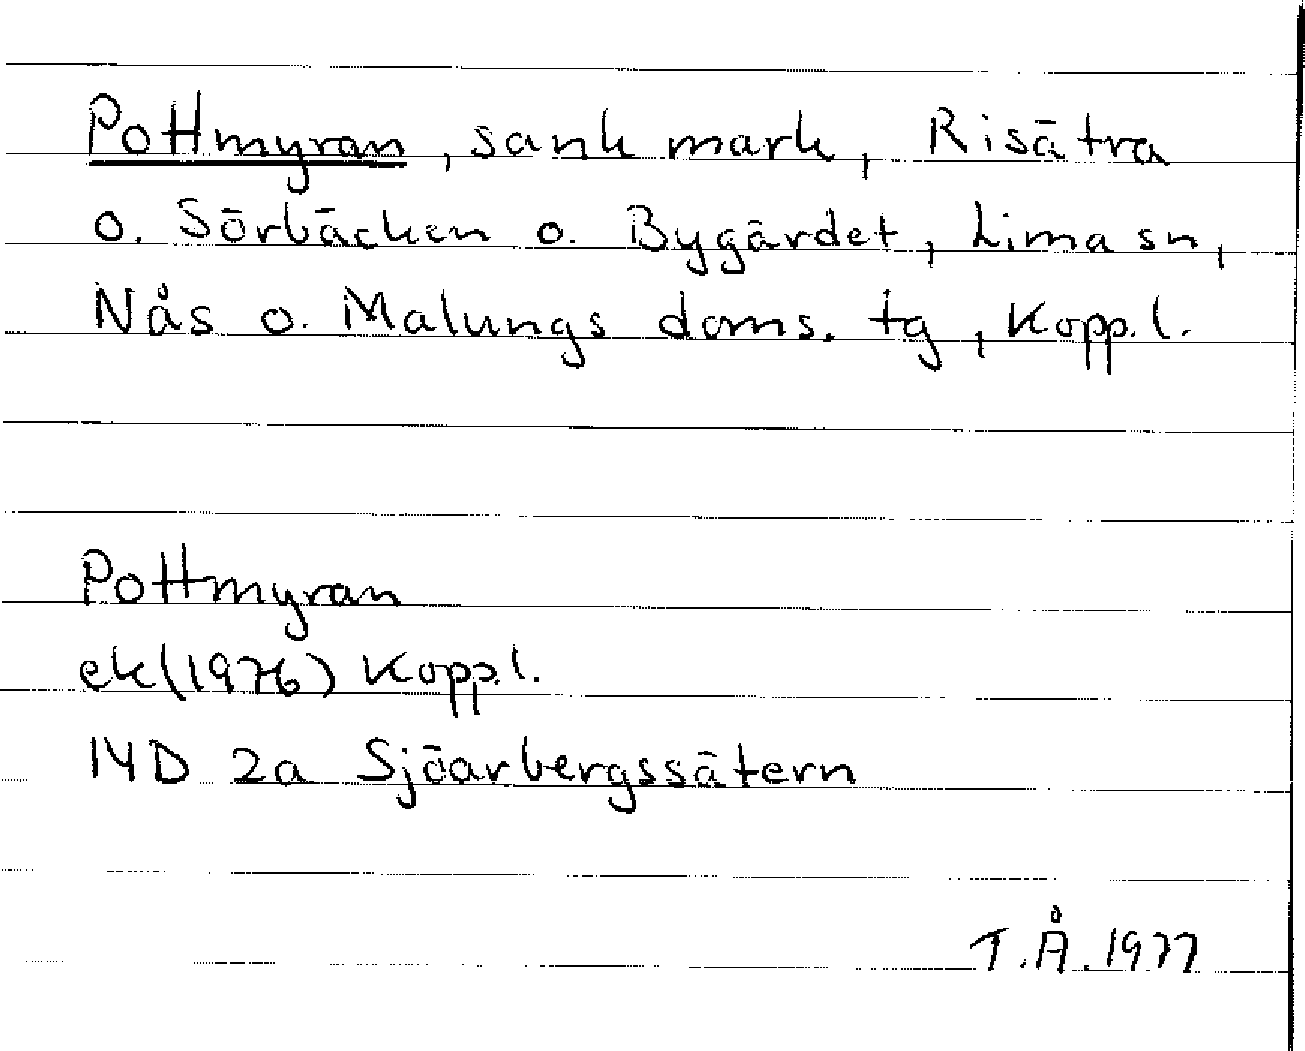 Pottmyran, sank mark, Risätra
o. Sörbäcken o. Bygärdet, Lima sn,
Nås o. Malungs doms. tg, Kopp. l.
Pottmyran
ek(1976) Kopp. l.
14D 2a Sjöarbergssätern
T.Å. 1977